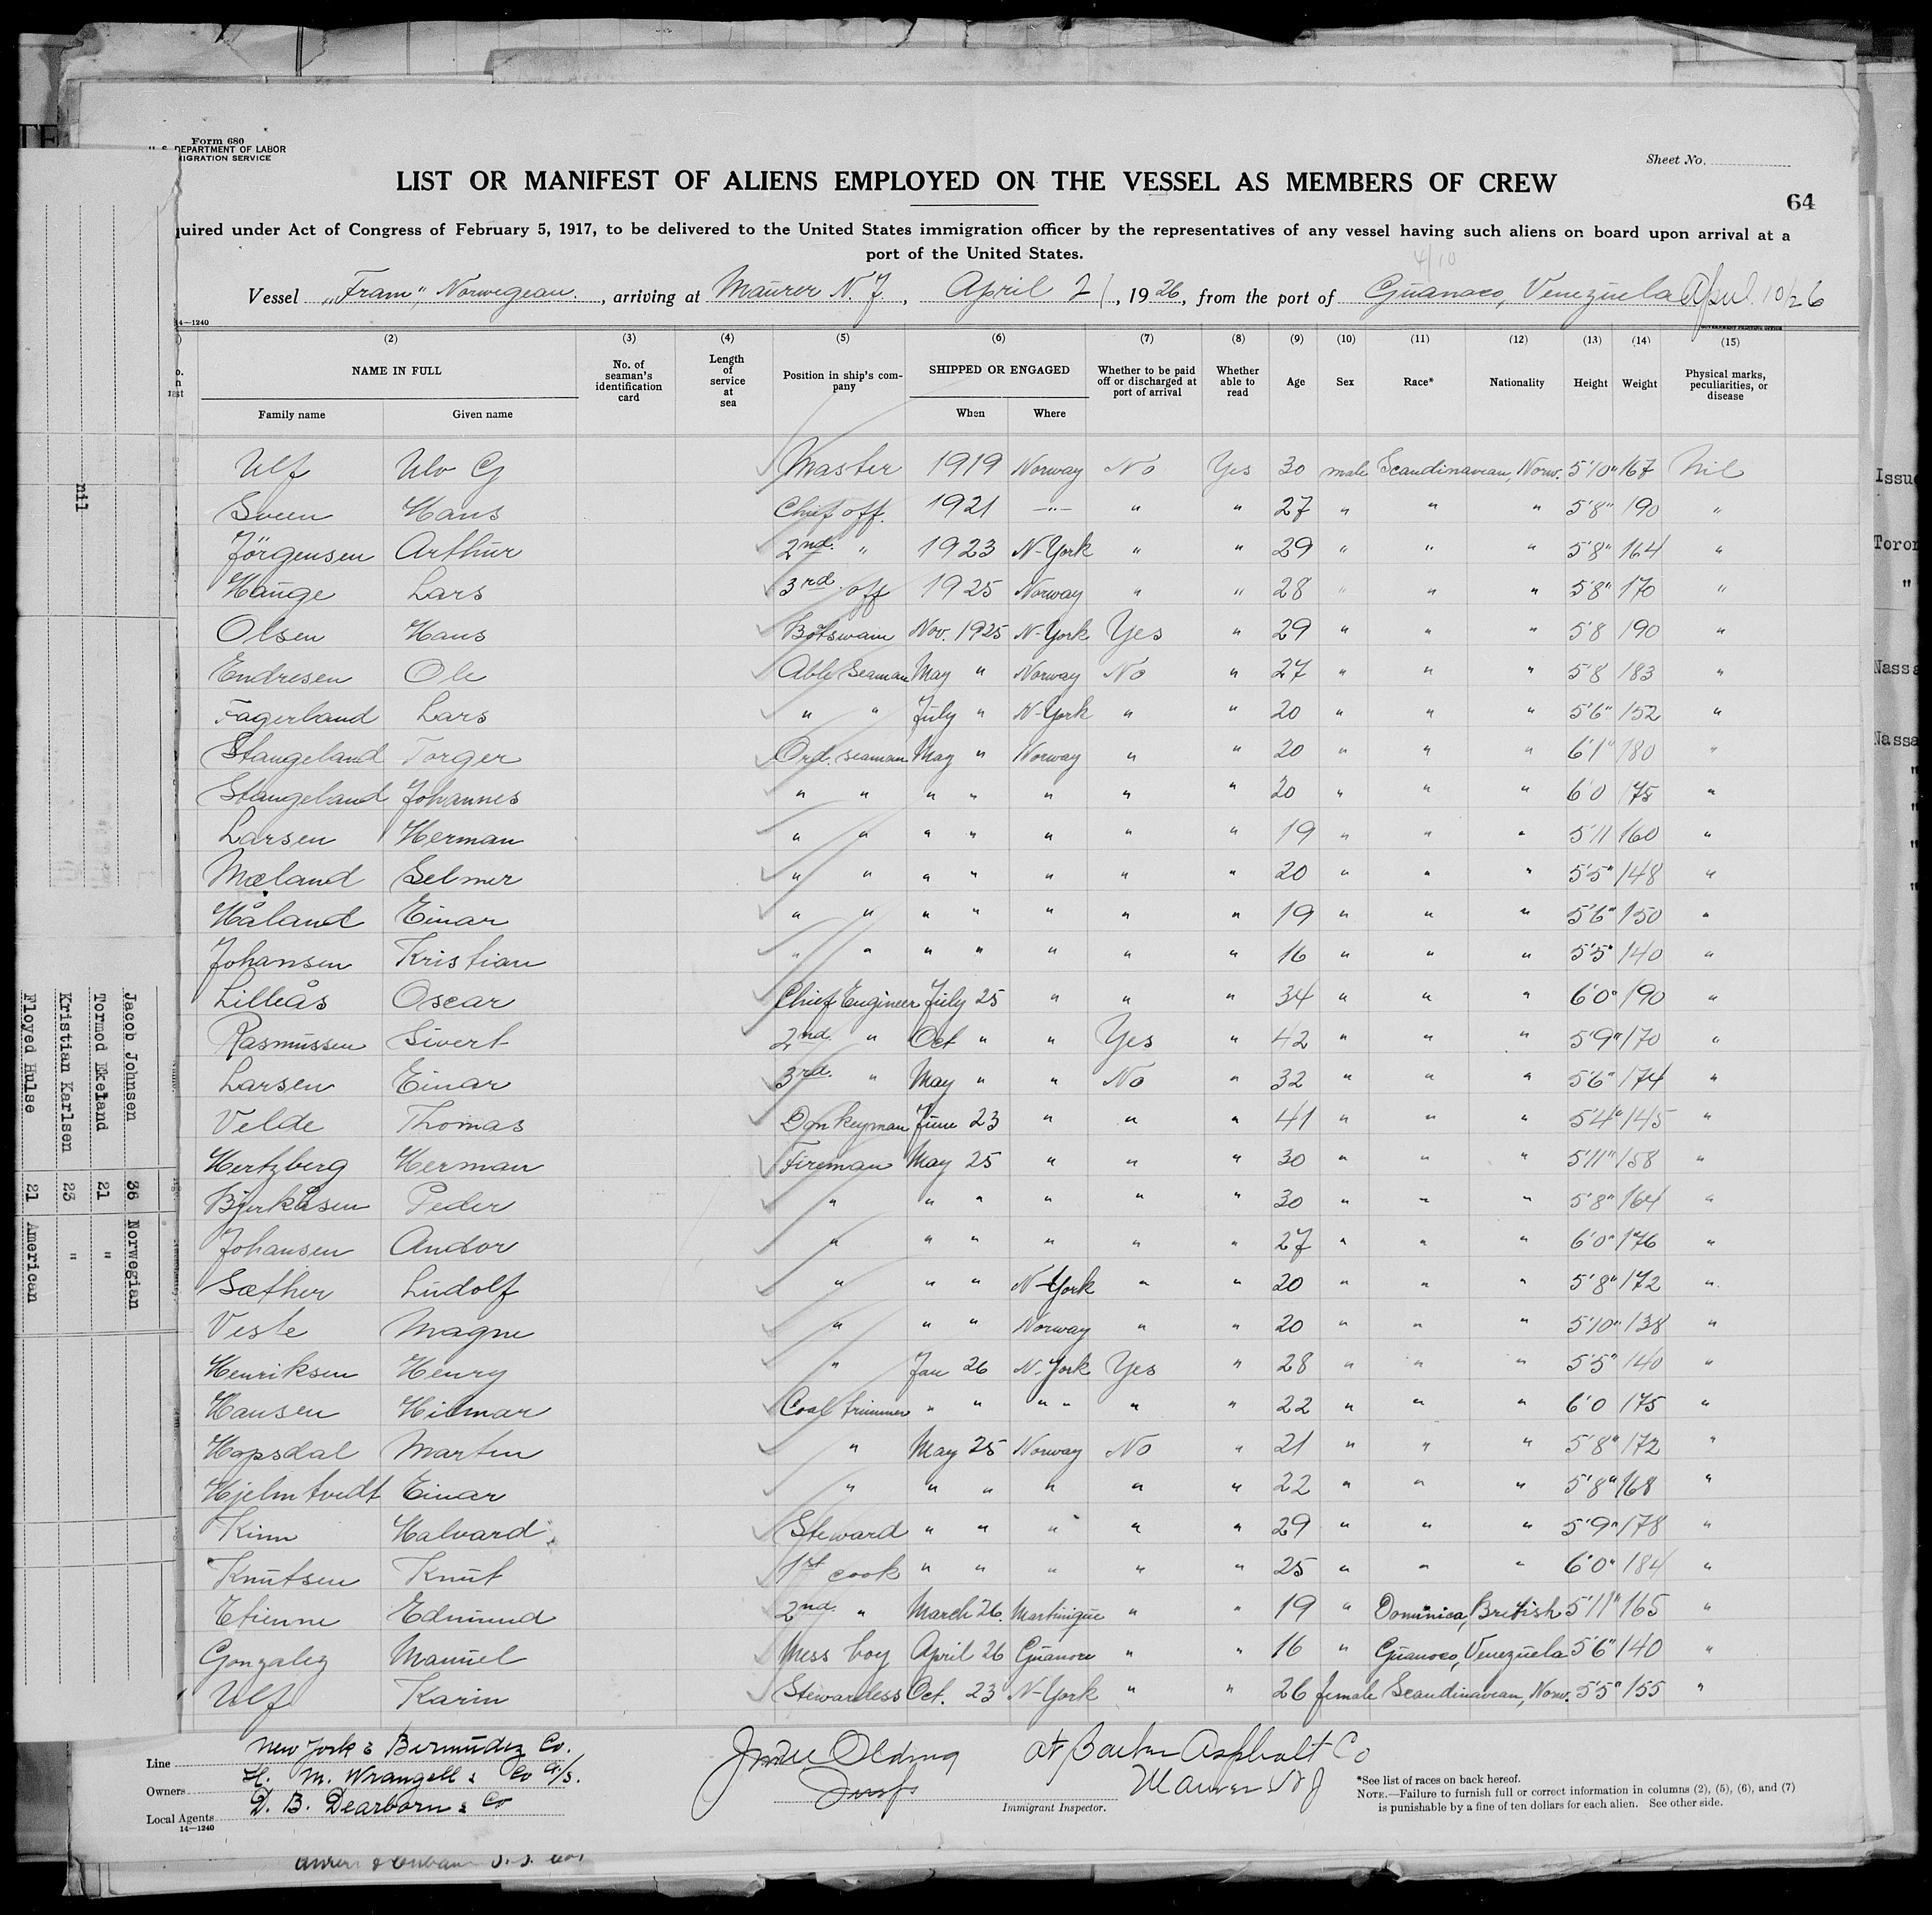 Form 680
U. S. DEPARTMENT OF LABOR
MIGRATION SERVICE
Sheet No.
LIST OR MANIFEST OF ALIENS EMPLOYED ON THE VESSEL AS MEMBERS OF CREW
64
quired under Act of Congress of February 5, 1917, to be delivered to the United States immigration officer by the representatives of any vessel having such aliens on board upon arrival at a
port of the United States.
4/10
Vessel „Fram", Norwegean, arriving at Maurer N. J., April 21, 1926, from the port of Guanoco, Venezuela April 10/26
14—1240
(2) (3) (4) (5) (6) (7) (8) (9) (10) (11) (12) (13) (14) (15)
NAME IN FULL No. of seaman's identification card Length of service at sea Position in ship's company SHIPPED OR ENGAGED Whether to be paid off or discharged at port of arrival Whether able to read Age Sex Race* Nationality Height Weight Physical marks, peculiarities, or disease
Family name Given name When Where
Ulf Ulv G Master 1919 Norway No Yes 30 male Scandinavian, Norw. 5'10" 167 Nil
Sveen Hans Chief off. 1921 —"— " " 27 " " " 5'8" 190 "
Jörgensen Arthur 2nd. " 1923 N-York " " 29 " " " 5'8" 164 "
Hauge Lars 3rd. off 1925 Norway " " 28 " " " 5'8" 170 "
Olsen Hans Botswain Nov. 1925 N-York Yes " 29 " " " 5'8 190 "
Endresen Ole Able Seaman May " Norway No " 27 " " " 5'8 183 "
Fagerland Lars " " July " N-York " " 20 " " " 5'6" 152 "
Stangeland Torger Ord. seaman May " Norway " " 20 " " " 6'1" 180 "
Stangeland Johannes " " " " " " " 20 " " " 6'0 175 "
Larsen Herman " " " " " " " 19 " " " 5'11 160 "
Mæland Selmer " " " " " " " 20 " " " 5'5" 148 "
Håland Einar " " " " " " " 19 " " " 5'6" 150 "
Johansen Kristian " " " " " " " 16 " " " 5'5" 140 "
Lilleås Oscar Chief Engineer July 25 " " " 34 " " " 6'0" 190 "
Rasmussen Sivert 2nd. " Oct " " Yes " 42 " " " 5'9" 170 "
Larsen Einar 3rd. " May " " No " 32 " " " 5'6" 174 "
Velde Thomas Donkeyman June 23 " " " 41 " " " 5'4" 145 "
Hertzberg Herman Fireman May 25 " " " 30 " " " 5'11" 158 "
Bjerkåsen Peder " " " " " " 30 " " " 5'8" 164 "
Johansen Andor " " " " " " 27 " " " 6'0" 176 "
Sæther Ludolf " " " N-York " " 20 " " " 5'8" 172 "
Veste Magne " " " Norway " " 20 " " " 5'10" 138 "
Henriksen Henry " Jan 26 N-York Yes " 28 " " " 5'5" 140 "
Hansen Hilmar Coal trimmer " " " " " " 22 " " " 6'0 175 "
Hopsdal Martin " May 25 Norway No " 21 " " " 5'8" 172 "
Hjelmtvedt Einar " " " " " " 22 " " " 5'8" 168 "
Kinn Halvard Steward " " " " " 29 " " " 5'9" 178 "
Knutsen Knut 1st cook " " " " " 25 " " " 6'0" 184 "
Etienne Edmund 2nd. " March 26. Martinique " " 19 " Dominica, British 5'11" 165 "
Gonzalez Manuel Mess boy April 26 Guanoco " " 16 " Guanoco, Venezuela 5'6" 140 "
Ulf Karin Stewardess Oct. 23 N-York " " 26 female Scandinavian, Norw. 5'5" 155 "
Line New York & Bermudez Co.
Owners H. M. Wrangell & Co A/S.
Local Agents D. B. Dearborn & Co
14—1240
Olding
Insp
Immigrant Inspector.
at Barber Asphalt Co
Maurer N J
*See list of races on back hereof.
NOTE.—Failure to furnish full or correct information in columns (2), (5), (6), and (7)
is punishable by a fine of ten dollars for each alien. See other side.
nil
Jacob Johnsen 36 Norwegian
Tormod Ekeland 21 "
Kristian Karlsen 23 "
Floyed Hulse 21 American
Issue
Toron
"
Nassa
Nassa